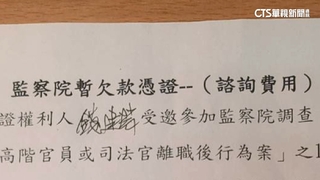 CTS華視新聞
監察院暫欠款憑證--（諮詢費用）
證權利人 受邀參加監察院調查
高階官員或司法官離職後行為案」之